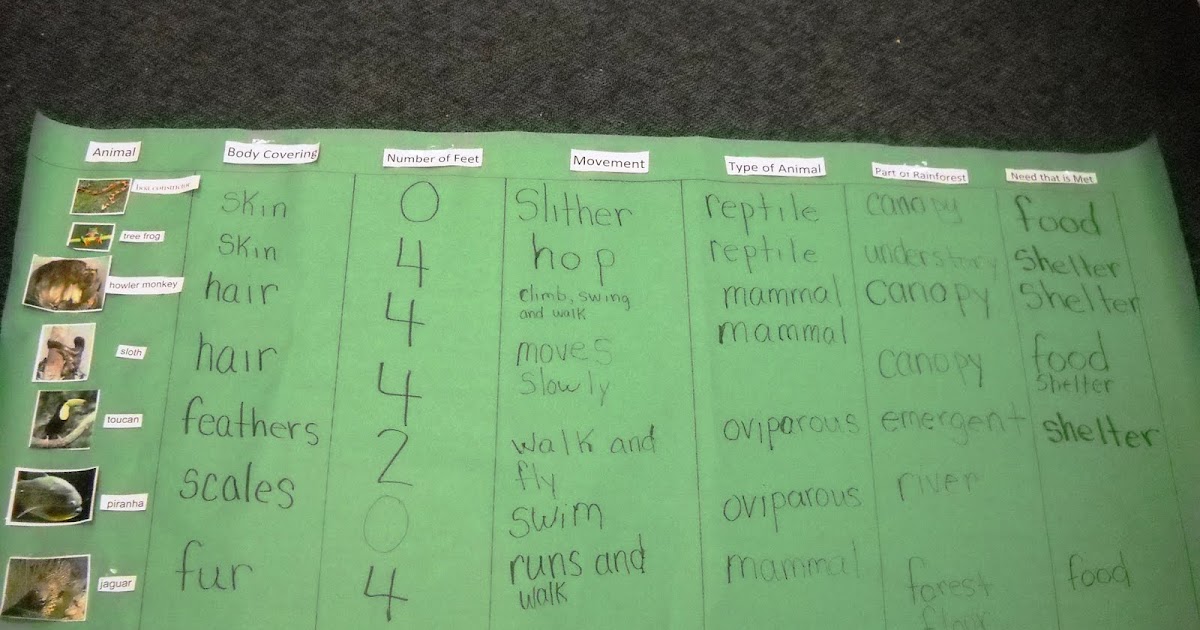 Animal Body Covering Number of Feet Movement Type of Animal Part of Rainforest Need that is Met
boa constrictor skin 0 Slither reptile canopy food
tree frog skin 4 hop reptile understory Shelter
howler monkey hair 4 climb, swing mammal canopy Shelter
and walk
sloth hair 4 moves mammal canopy food
slowly shelter
toucan feathers 2 walk and oviparous emergent shelter
fly
piranha scales 0 swim oviparous river
jaguar fur 4 runs and mammal forest food
walk floor